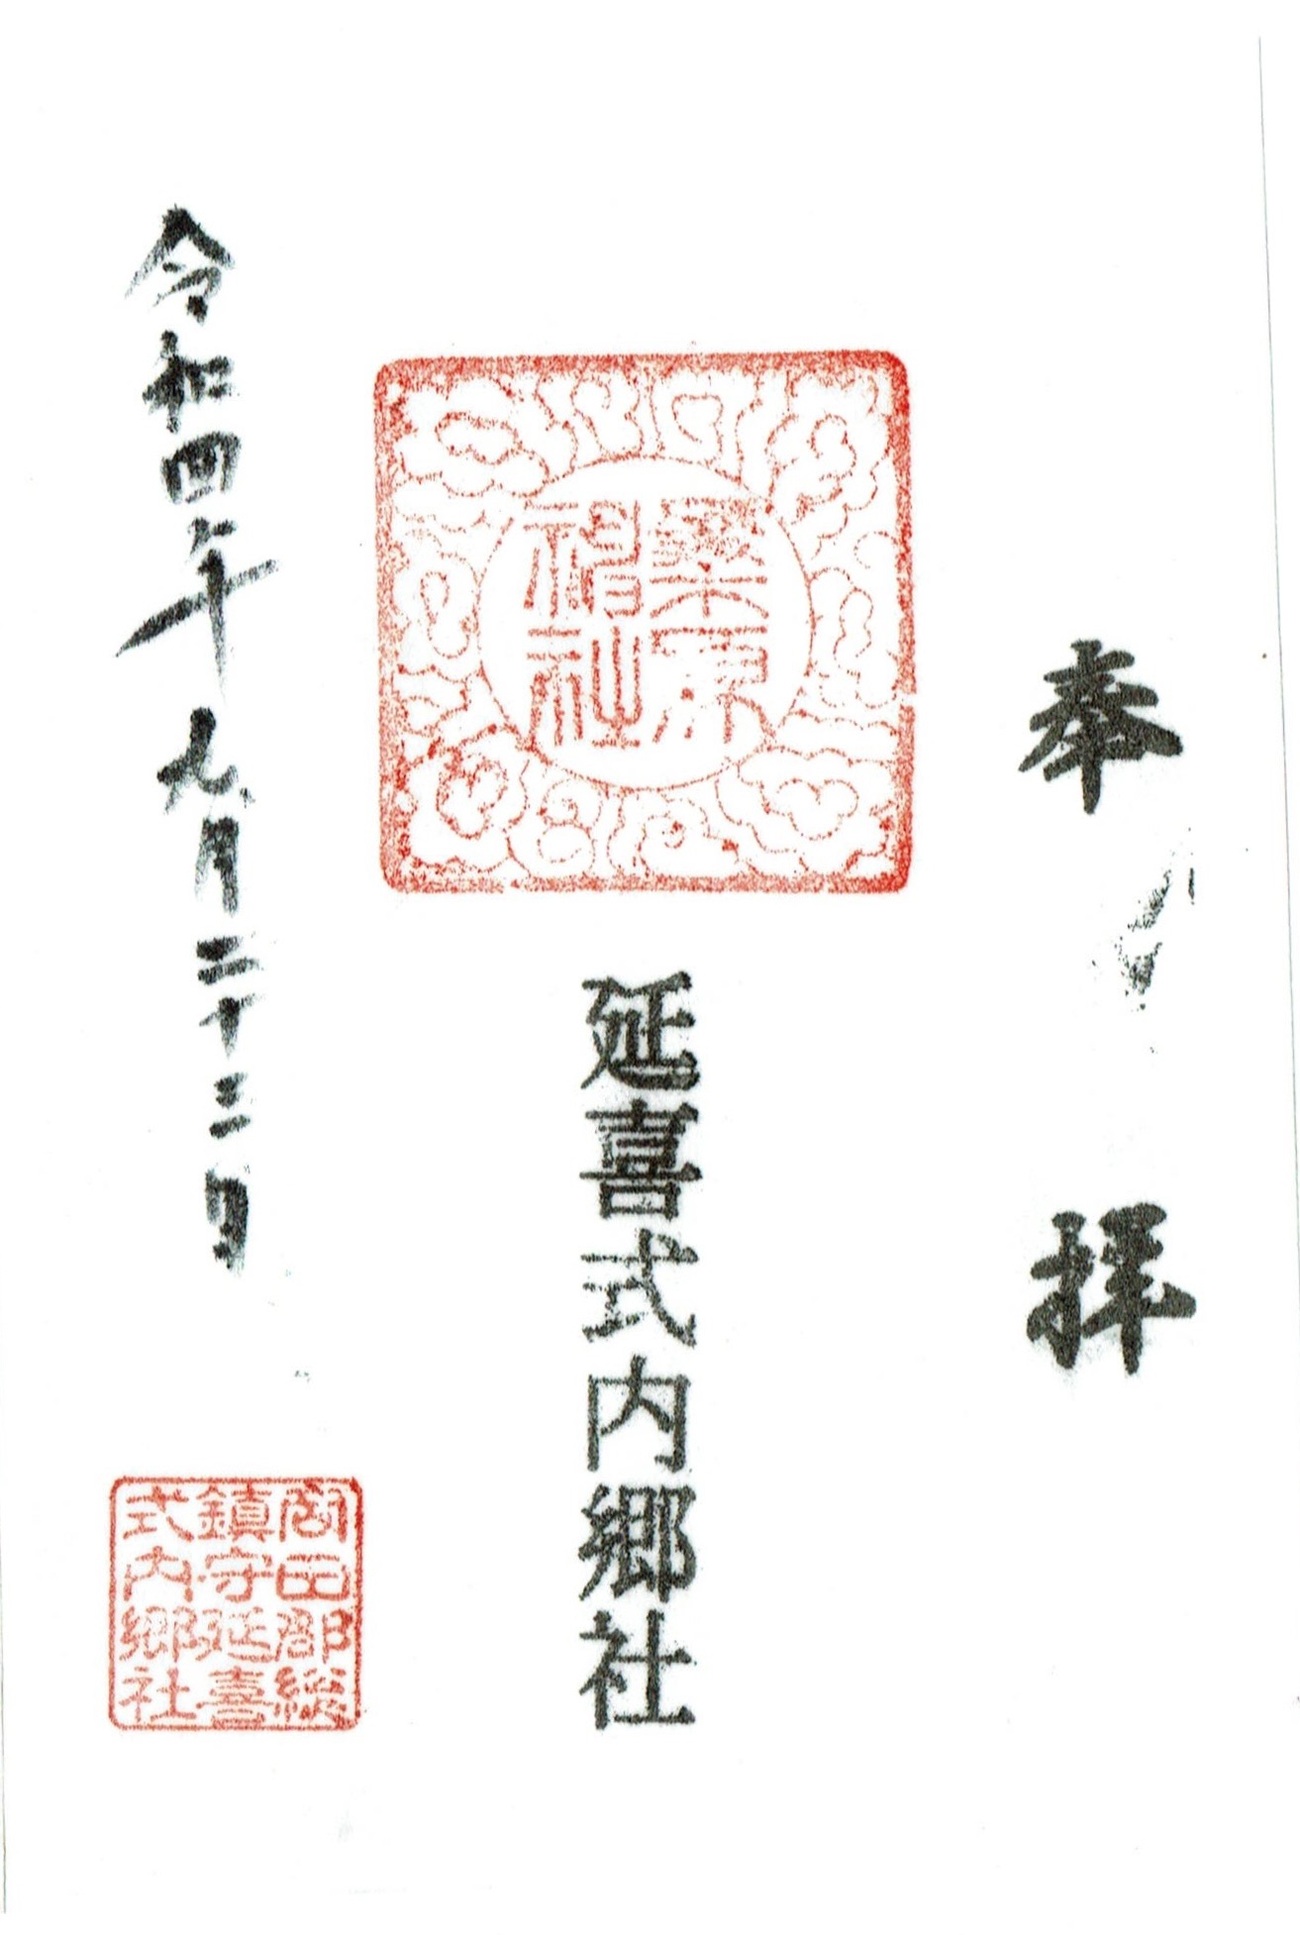 奉拝
桑原神社
延喜式内郷社
令和四年九月二十三日
商田郡総
鎮守延喜
式内郷社